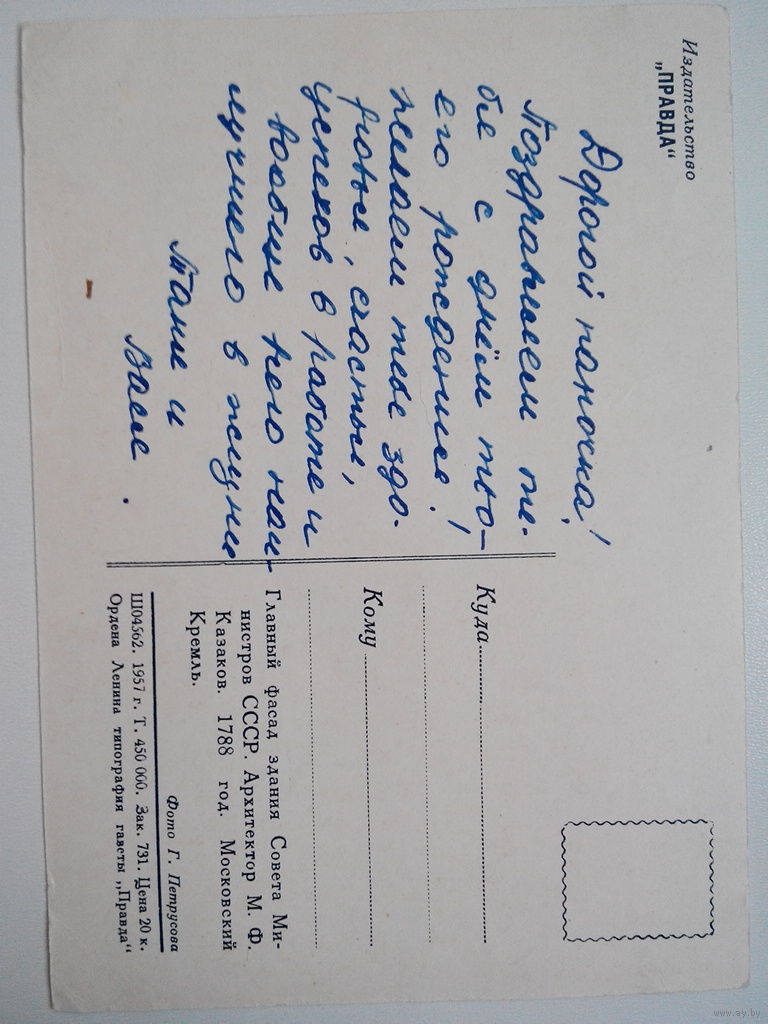 Издательство
„ПРАВДА“
Дорогой папочка!
Поздравляем те-
бя с днём тво-
его рождения!
Желаем тебе здо-
ровья, счастья,
успехов в работе и
вообще всего наи-
лучшего в жизни
Таня и
Валя.
Куда
Кому
Главный фасад здания Совета Ми-
нистров СССР. Архитектор М. Ф.
Казаков. 1788 год. Московский
Кремль.
Фото Г. Петрусова
Ш04562. 1957 г. Т. 450 000. Зак. 731. Цена 20 к.
Ордена Ленина типография газеты „Правда“
www.ay.by